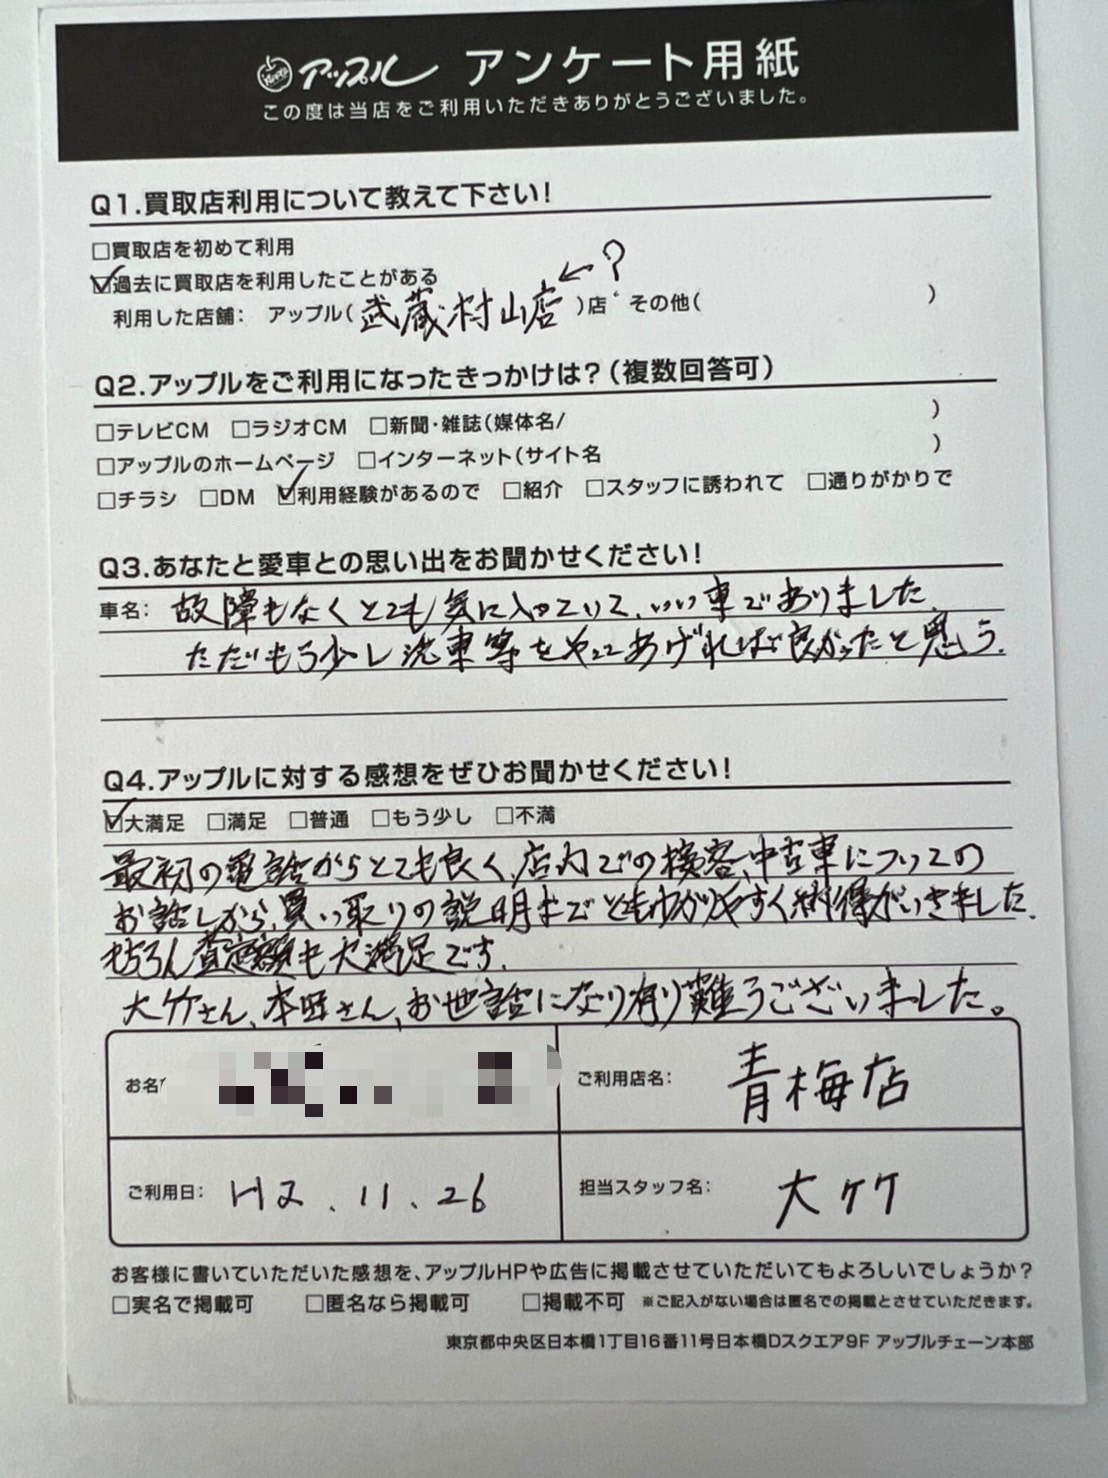 アップル アンケート用紙
この度は当店をご利用いただきありがとうございました。
Q1.買取店利用について教えて下さい!
□買取店を初めて利用
☑過去に買取店を利用したことがある ←?
利用した店舗: アップル(武蔵村山店)店 その他( )
Q2.アップルをご利用になったきっかけは?(複数回答可)
□テレビCM □ラジオCM □新聞・雑誌(媒体名/ )
□アップルのホームページ □インターネット(サイト名 )
□チラシ □DM ☑利用経験があるので □紹介 □スタッフに誘われて □通りがかりで
Q3.あなたと愛車との思い出をお聞かせください!
車名: 故障もなくとても気に入っていて、いい車でありました。
ただもう少し洗車等をやってあげれば良かったと思う。
Q4.アップルに対する感想をぜひお聞かせください!
☑大満足 □満足 □普通 □もう少し □不満
最初の電話からとても良く、店内での接客、中古車についての
お話しから、買い取りの説明までとてもわかりやすく納得がいきました。
もちろん査定額も大満足です。
大竹さん、本田さん、お世話になり有り難うございました。
お名
ご利用店名: 青梅店
ご利用日: H2.11.26
担当スタッフ名: 大竹
お客様に書いていただいた感想を、アップルHPや広告に掲載させていただいてもよろしいでしょうか?
□実名で掲載可 □匿名なら掲載可 □掲載不可 ※ご記入がない場合は匿名での掲載とさせていただきます。
東京都中央区日本橋1丁目16番11号日本橋Dスクエア9F アップルチェーン本部